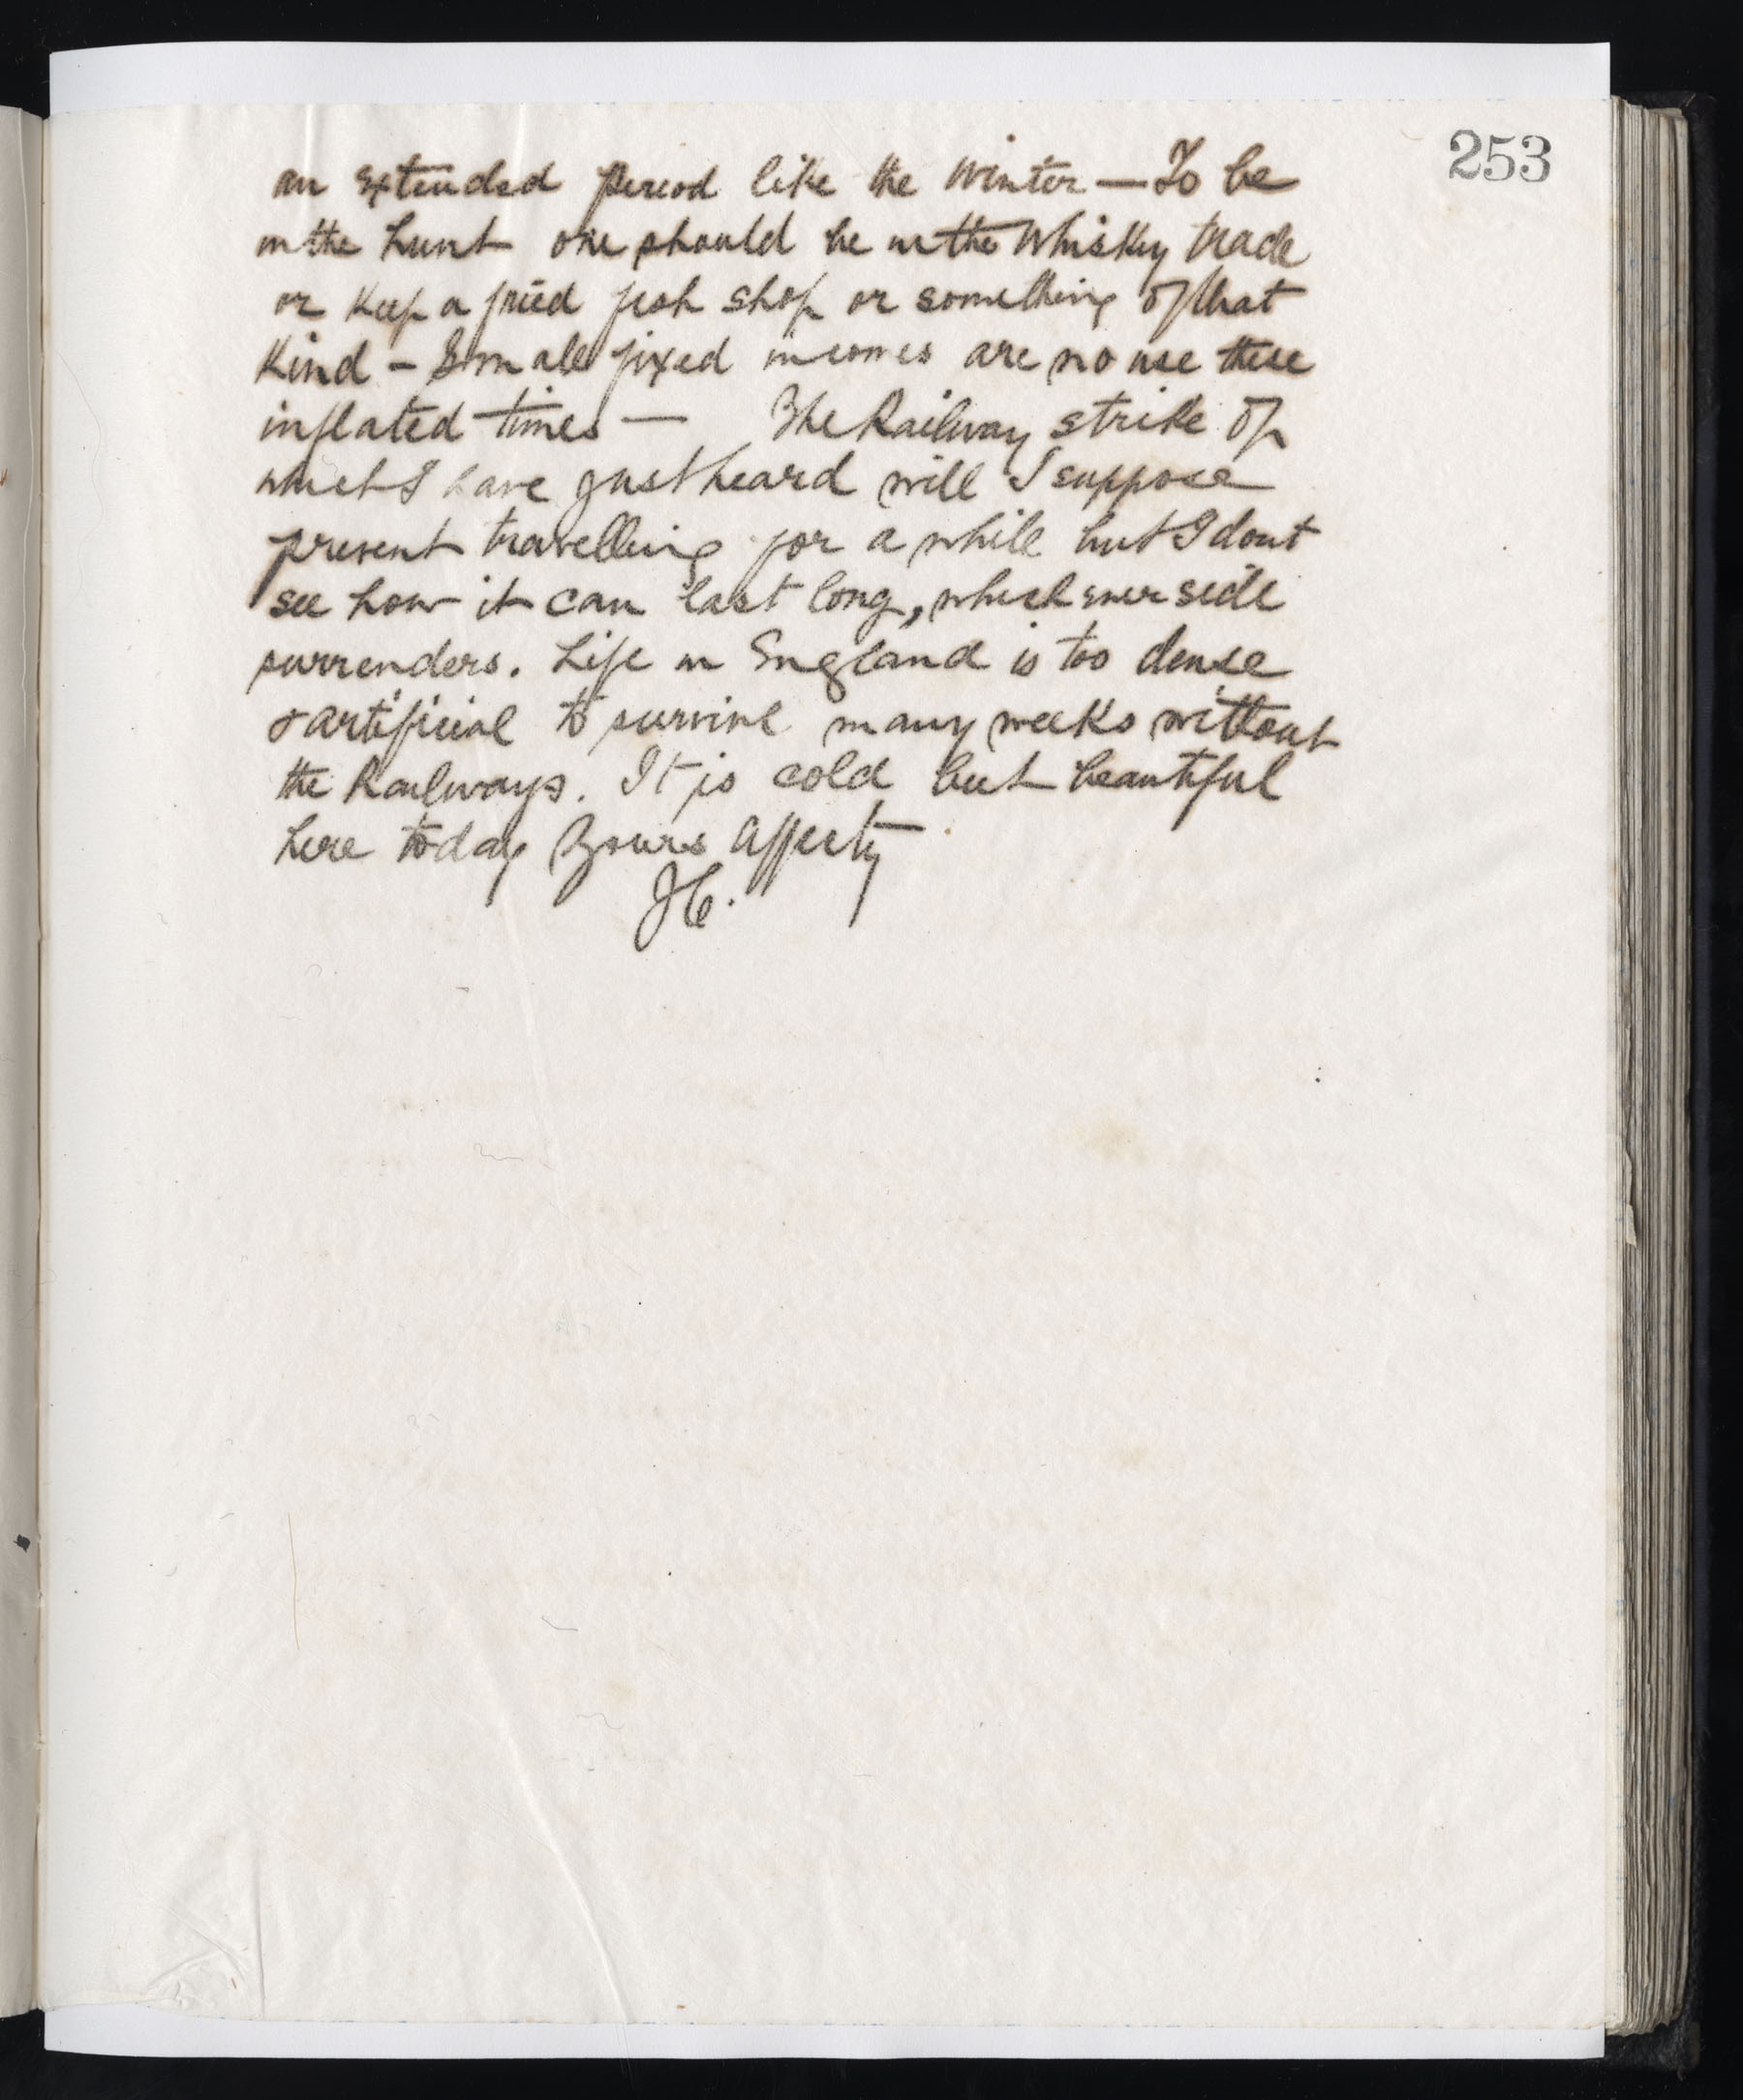 253
an extended period like the Winter — To be
in the hunt one should be in the Whisky trade
or keep a fried fish shop or something of that
kind - Small fixed incomes are no use these
inflated times — The Railway strike of
which I have just heard will I suppose
prevent travelling for a while but I dont
see how it can last long, whichever side
surrenders. Life in England is too dense
& artificial to survive many weeks without
the Railways. It is cold but beautiful
here today Yours affectly
JC.